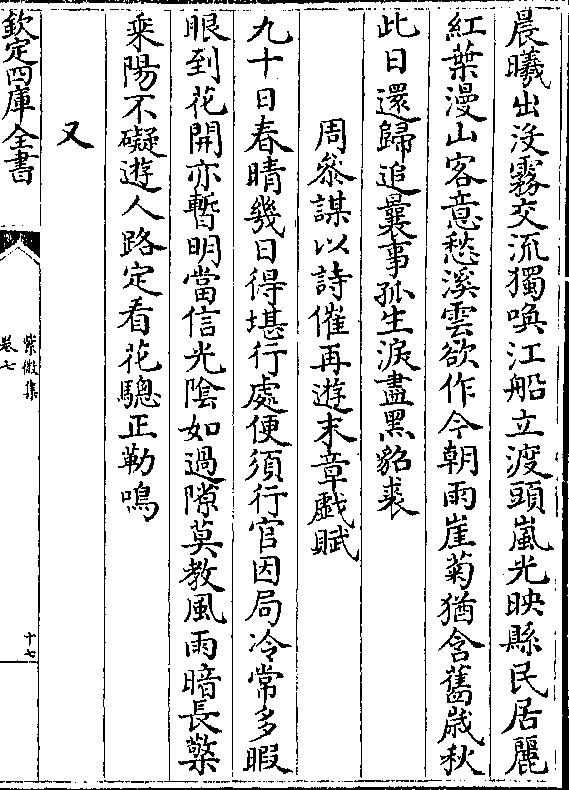 晨曦出没霧交流獨喚江船立渡頭嵐光映縣民居麗
紅葉漫山客意愁溪雲欲作今朝雨崖菊猶含舊歲秋
此日還歸追曩事孤生淚盡黑貂裘
周叅謀以詩催再遊末章戲賦
九十日春晴幾日得堪行處便須行官因局冷常多暇
眼到花開亦暫明當信光陰如過隙莫教風雨暗長檠
乘陽不礙遊人路定看花驄正勒鳴
又
欽定四庫全書
紫微集
卷七
十七